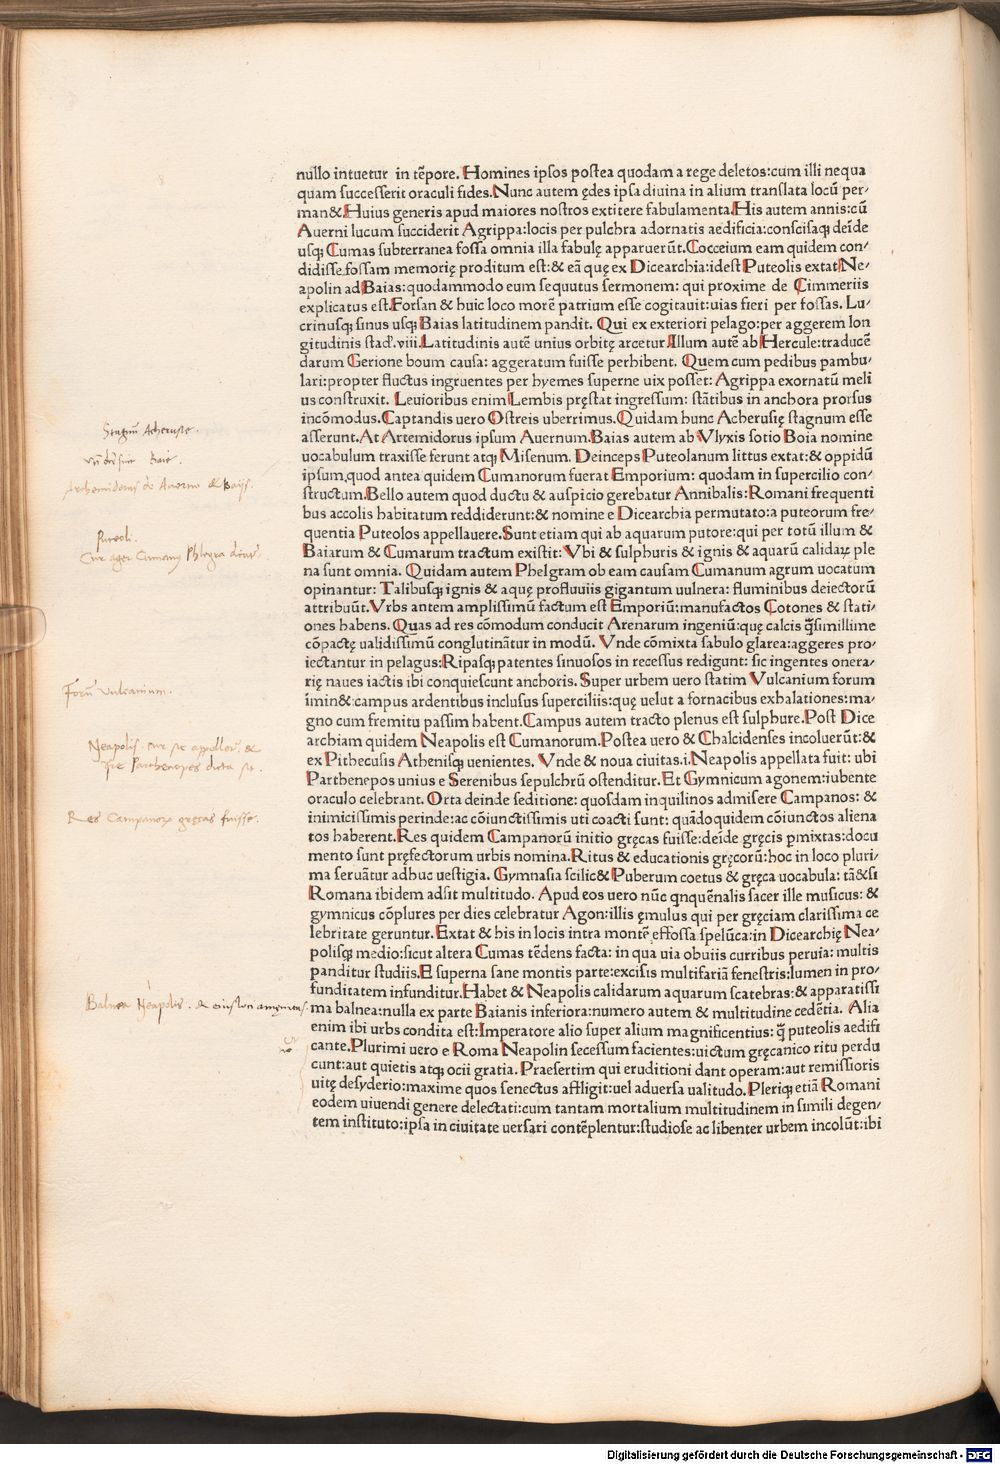 nullo intuetur in tēpore. Homines ipsos postea quodam a rege deletos: cum illi nequa
quam successerit oraculi fides. Nunc autem ędes ipsa diuina in alium translata locū per/
man&. Huius generis apud maiores nostros extitere fabulamenta. His autem annis: cū
Auerni lucum succiderit Agrippa: locis per pulchra adornatis aedificia: conscisaq; deīde
usq; Cumas subterranea fossa omnia illa fabulę apparuerūt. Cocceium eam quidem con/
didisse fossam memorię proditum est: & eā quę ex Dicearchia: idest Puteolis extat Ne/
apolin ad Baias: quodammodo eum sequutus sermonem: qui proxime de Cimmeriis
explicatus est. Forsan & huic loco morē patrium esse cogitauit: uias fieri per fossas. Lu/
crinusq; sinus usq; Baias latitudinem pandit. Qui ex exteriori pelago: per aggerem lon
gitudinis stad'. viii. Latitudinis autē unius orbitę arcetur. Illum autē ab Hercule: traducē
darum Gerione boum causa: aggeratum fuisse perhibent. Quem cum pedibus pambu/
lari: propter fluctus ingruentes per hyemes superne uix posset: Agrippa exornatū meli
us construxit. Leuioribus enim Lembis pręstat ingressum: stātibus in anchora prorsus
incōmodus. Captandis uero Ostreis uberrimus. Quidam hunc Acherusię stagnum esse
asserunt. At Artemidorus ipsum Auernum. Baias autem ab Vlyxis sotio Boia nomine
uocabulum traxisse ferunt atq; Misenum. Deinceps Puteolanum littus extat: & oppidū
ipsum, quod antea quidem Cumanorum fuerat Emporium: quodam in supercilio con/
structum. Bello autem quod ductu & auspicio gerebatur Annibalis: Romani frequenti
bus accolis habitatum reddiderunt: & nomine e Dicearchia permutato: a puteorum fre/
quentia Puteolos appellauere. Sunt etiam qui ab aquarum putore: qui per totū illum &
Baiarum & Cumarum tractum existit: Vbi & sulphuris & ignis & aquarū calidaꝝ ple
na sunt omnia. Quidam autem Phelgram ob eam causam Cumanum agrum uocatum
opinantur: Talibusq; ignis & aquę profluuiis gigantum uulnera: fluminibus deiectorū
attribuūt. Vrbs antem amplissimū factum est Emporiū: manufactos Cotones & stati/
ones habens. Quas ad res cōmodum conducit Arenarum ingeniū: quę calcis q̄simillime
cōpactę ualidissimū conglutinātur in modū. Vnde cōmixta sabulo glarea: aggeres pro/
iectantur in pelagus: Ripasq; patentes sinuosos in recessus redigunt: sic ingentes onera/
rię naues iactis ibi conquiescunt anchoris. Super urbem uero statim Vulcanium forum
īmin&: campus ardentibus inclusus superciliis: quę uelut a fornacibus exhalationes: ma/
gno cum fremitu passim habent. Campus autem tracto plenus est sulphure. Post Dice
archiam quidem Neapolis est Cumanorum. Postea uero & Chalcidenses incoluerūt: &
ex Pithecusis Athenisq; uenientes. Vnde & noua ciuitas. i. Neapolis appellata fuit: ubi
Parthenopes unius e Serenibus sepulchrū ostenditur. Et Gymnicum agonem: iubente
oraculo celebrant. Orta deinde seditione: quosdam inquilinos admisere Campanos: &
inimicissimis perinde: ac cōiunctissimis uti coacti sunt: quādoquidem cōiunctos aliena
tos haberent. Res quidem Campanorū initio gręcas fuisse: deīde gręcis ꝑmixtas: docu
mento sunt pręfectorum urbis nomina. Ritus & educationis gręcorū: hoc in loco pluri/
ma seruātur adhuc uestigia. Gymnasia scilic& Puberum coetus & gręca uocabula: tā&si
Romana ibidem adsit multitudo. Apud eos uero nūc qnquēnalis sacer ille musicus: &
gymnicus cōplures per dies celebratur Agon: illis ęmulus qui per gręciam clarissima ce
lebritate geruntur. Extat & his in locis intra montē effossa spelūca: in Dicearchię Nea/
polisq; medio: sicut altera Cumas tēdens facta: in qua uia obuiis curribus peruia: multis
panditur studiis. E superna sane montis parte: excisis multifariā fenestris: lumen in pro/
funditatem infunditur. Habet & Neapolis calidarum aquarum scatebras: & apparatissi
ma balnea: nulla ex parte Baianis inferiora: numero autem & multitudine cedētia. Alia
enim ibi urbs condita est: Imperatore alio super alium magnificentius: q̄ puteolis aedifi
cante. Plurimi uero e Roma Neapolin secessum facientes: uictum gręcanico ritu perdu
cunt: aut quietis atq; ocii gratia. Praesertim qui eruditioni dant operam: aut remissioris
uitę desyderio: maxime quos senectus affligit: uel aduersa ualitudo. Pleriq; etiā Romani
eodem uiuendi genere delectati: cum tantam mortalium multitudinem in simili degen/
tem instituto: ipsa in ciuitate uersari contēplentur: studiose ac libenter urbem incolūt: ibi
Stagnū Acherusie.
Baie.
Archemidorus de Auerno & Baijs.
puteoli.
Cur ager Cumanus Phlegra dicitur.
Forū Vulcanium.
Neapolis cur sic appellet. &
Parthenopes dicta sit.
Res Campanorū gręcas fuisse.
Balnea Neapolis. & eius loci amęnitas.
Digitalisierung gefördert durch die Deutsche Forschungsgemeinschaft - DFG